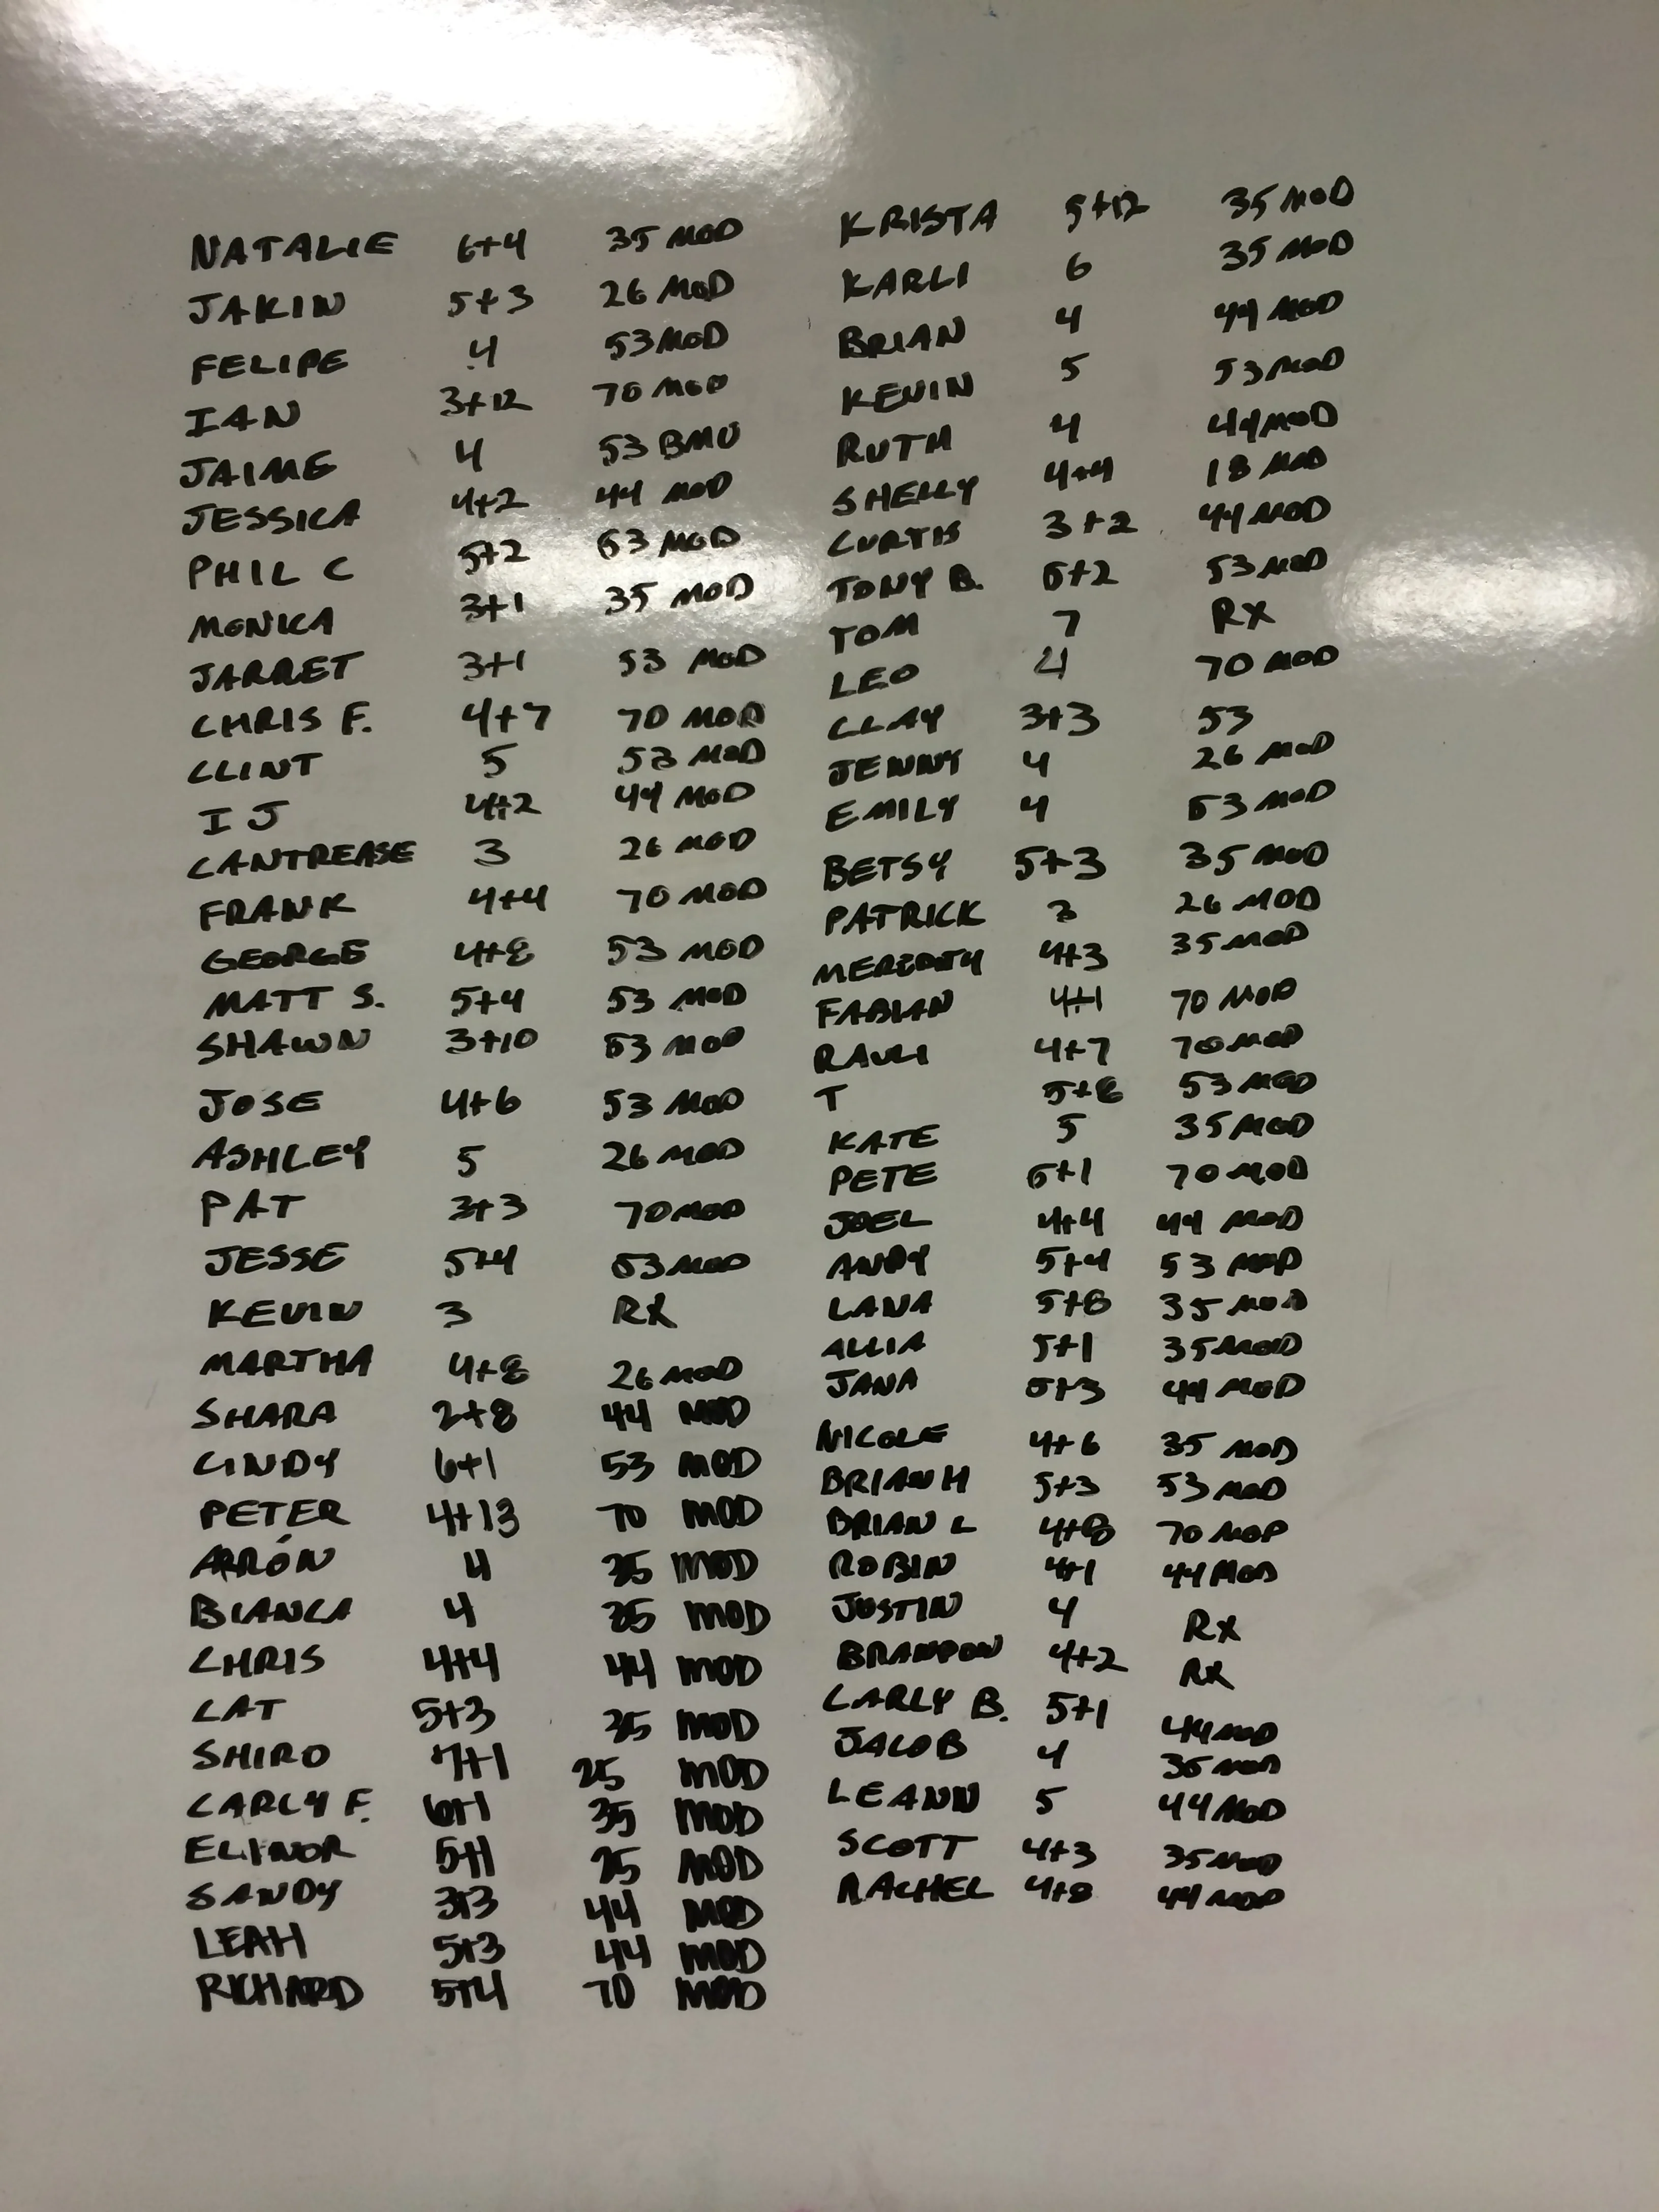 NATALIE 6+4 35 MOD
JAKIN 5+3 26 MOD
FELIPE 4 53 MOD
IAN 3+12 70 MOD
JAIME 4 53 BMU
JESSICA 4+2 44 MOD
PHIL C 5+2 53 MOD
MONICA 3+1 35 MOD
JARRET 3+1 53 MOD
CHRIS F. 4+7 70 MOD
CLINT 5 53 MOD
IJ 4+2 44 MOD
CANTREASE 3 26 MOD
FRANK 4+4 70 MOD
GEORGE 4+8 53 MOD
MATT S. 5+4 53 MOD
SHAWN 3+10 53 MOD
JOSE 4+6 53 MOD
ASHLEY 5 26 MOD
PAT 3+3 70 MOD
JESSE 5+4 53 MOD
KEVIN 3 RX
MARTHA 4+8 26 MOD
SHARA 2+8 44 MOD
CINDY 6+1 53 MOD
PETER 4+13 70 MOD
ARRÓN 4 35 MOD
BIANCA 4 35 MOD
CHRIS 4+4 44 MOD
CAT 5+3 35 MOD
SHIRO 7+1 25 MOD
CARLY F. 6+1 35 MOD
ELINOR 5+1 25 MOD
SANDY 3+3 44 MOD
LEAH 5+3 44 MOD
RICHARD 5+4 70 MOD
KRISTA 5+12 35 MOD
KARLI 6 35 MOD
BRIAN 4 44 MOD
KEVIN 5 53 MOD
RUTH 4 44 MOD
SHELLY 4+4 18 MOD
CURTIS 3+2 44 MOD
TONY B. 5+2 53 MOD
TOM 7 RX
LEO 4 70 MOD
CLAY 3+3 53
JENNY 4 26 MOD
EMILY 4 53 MOD
BETSY 5+3 35 MOD
PATRICK 3 26 MOD
MEREDITH 4+3 35 MOD
FABIAN 4+1 70 MOD
4+7 70 MOD
T 5+8 53 MOD
KATE 5 35 MOD
PETE 6+1 70 MOD
JOEL 4+4 44 MOD
ANDY 5+4 53 MOD
LANA 5+8 35 MOD
ALLIA 5+1 35 MOD
JANA 5+3 44 MOD
NICOLE 4+6 35 MOD
BRIAN H 5+3 53 MOD
BRIAN L 4+8 70 MOD
ROBIN 4+1 44 MOD
JUSTIN 4 RX
BRANDON 4+2 RX
CARLY B. 5+1 44 MOD
JACOB 4 35 MOD
LEANN 5 44 MOD
SCOTT 4+3 35 MOD
RACHEL 4+8 44 MOD